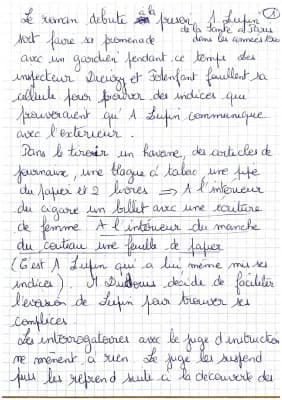 Le roman débute à la prison A Lupin ①
de la Santé à Paris
sort faire sa promenade dans les années 1900
avec un gardien pendant ce temps les
inspecteur Dieuzy et Folenfant fouillent sa
cellule pour trouver des indices qui
prouveraient qu' A Lupin communique
avec l'extérieur.
Dans le tiroir un havane, des articles de
journaux, une blague à tabac, une pipe
du papier et 2 livres ⇒ A l'intérieur
du cigare un billet avec une écriture
de femme. A l'intérieur du manche
du couteau une feuille de papier
(C'est A Lupin qui a lui même mis ses
indices). M Dudouis décide de faciliter
l'évasion de Lupin pour trouver ses
complices
Les interrogatoires avec le juge d'instruction
ne mènent à rien Le juge les suspend
puis les reprend suite à la découverte des